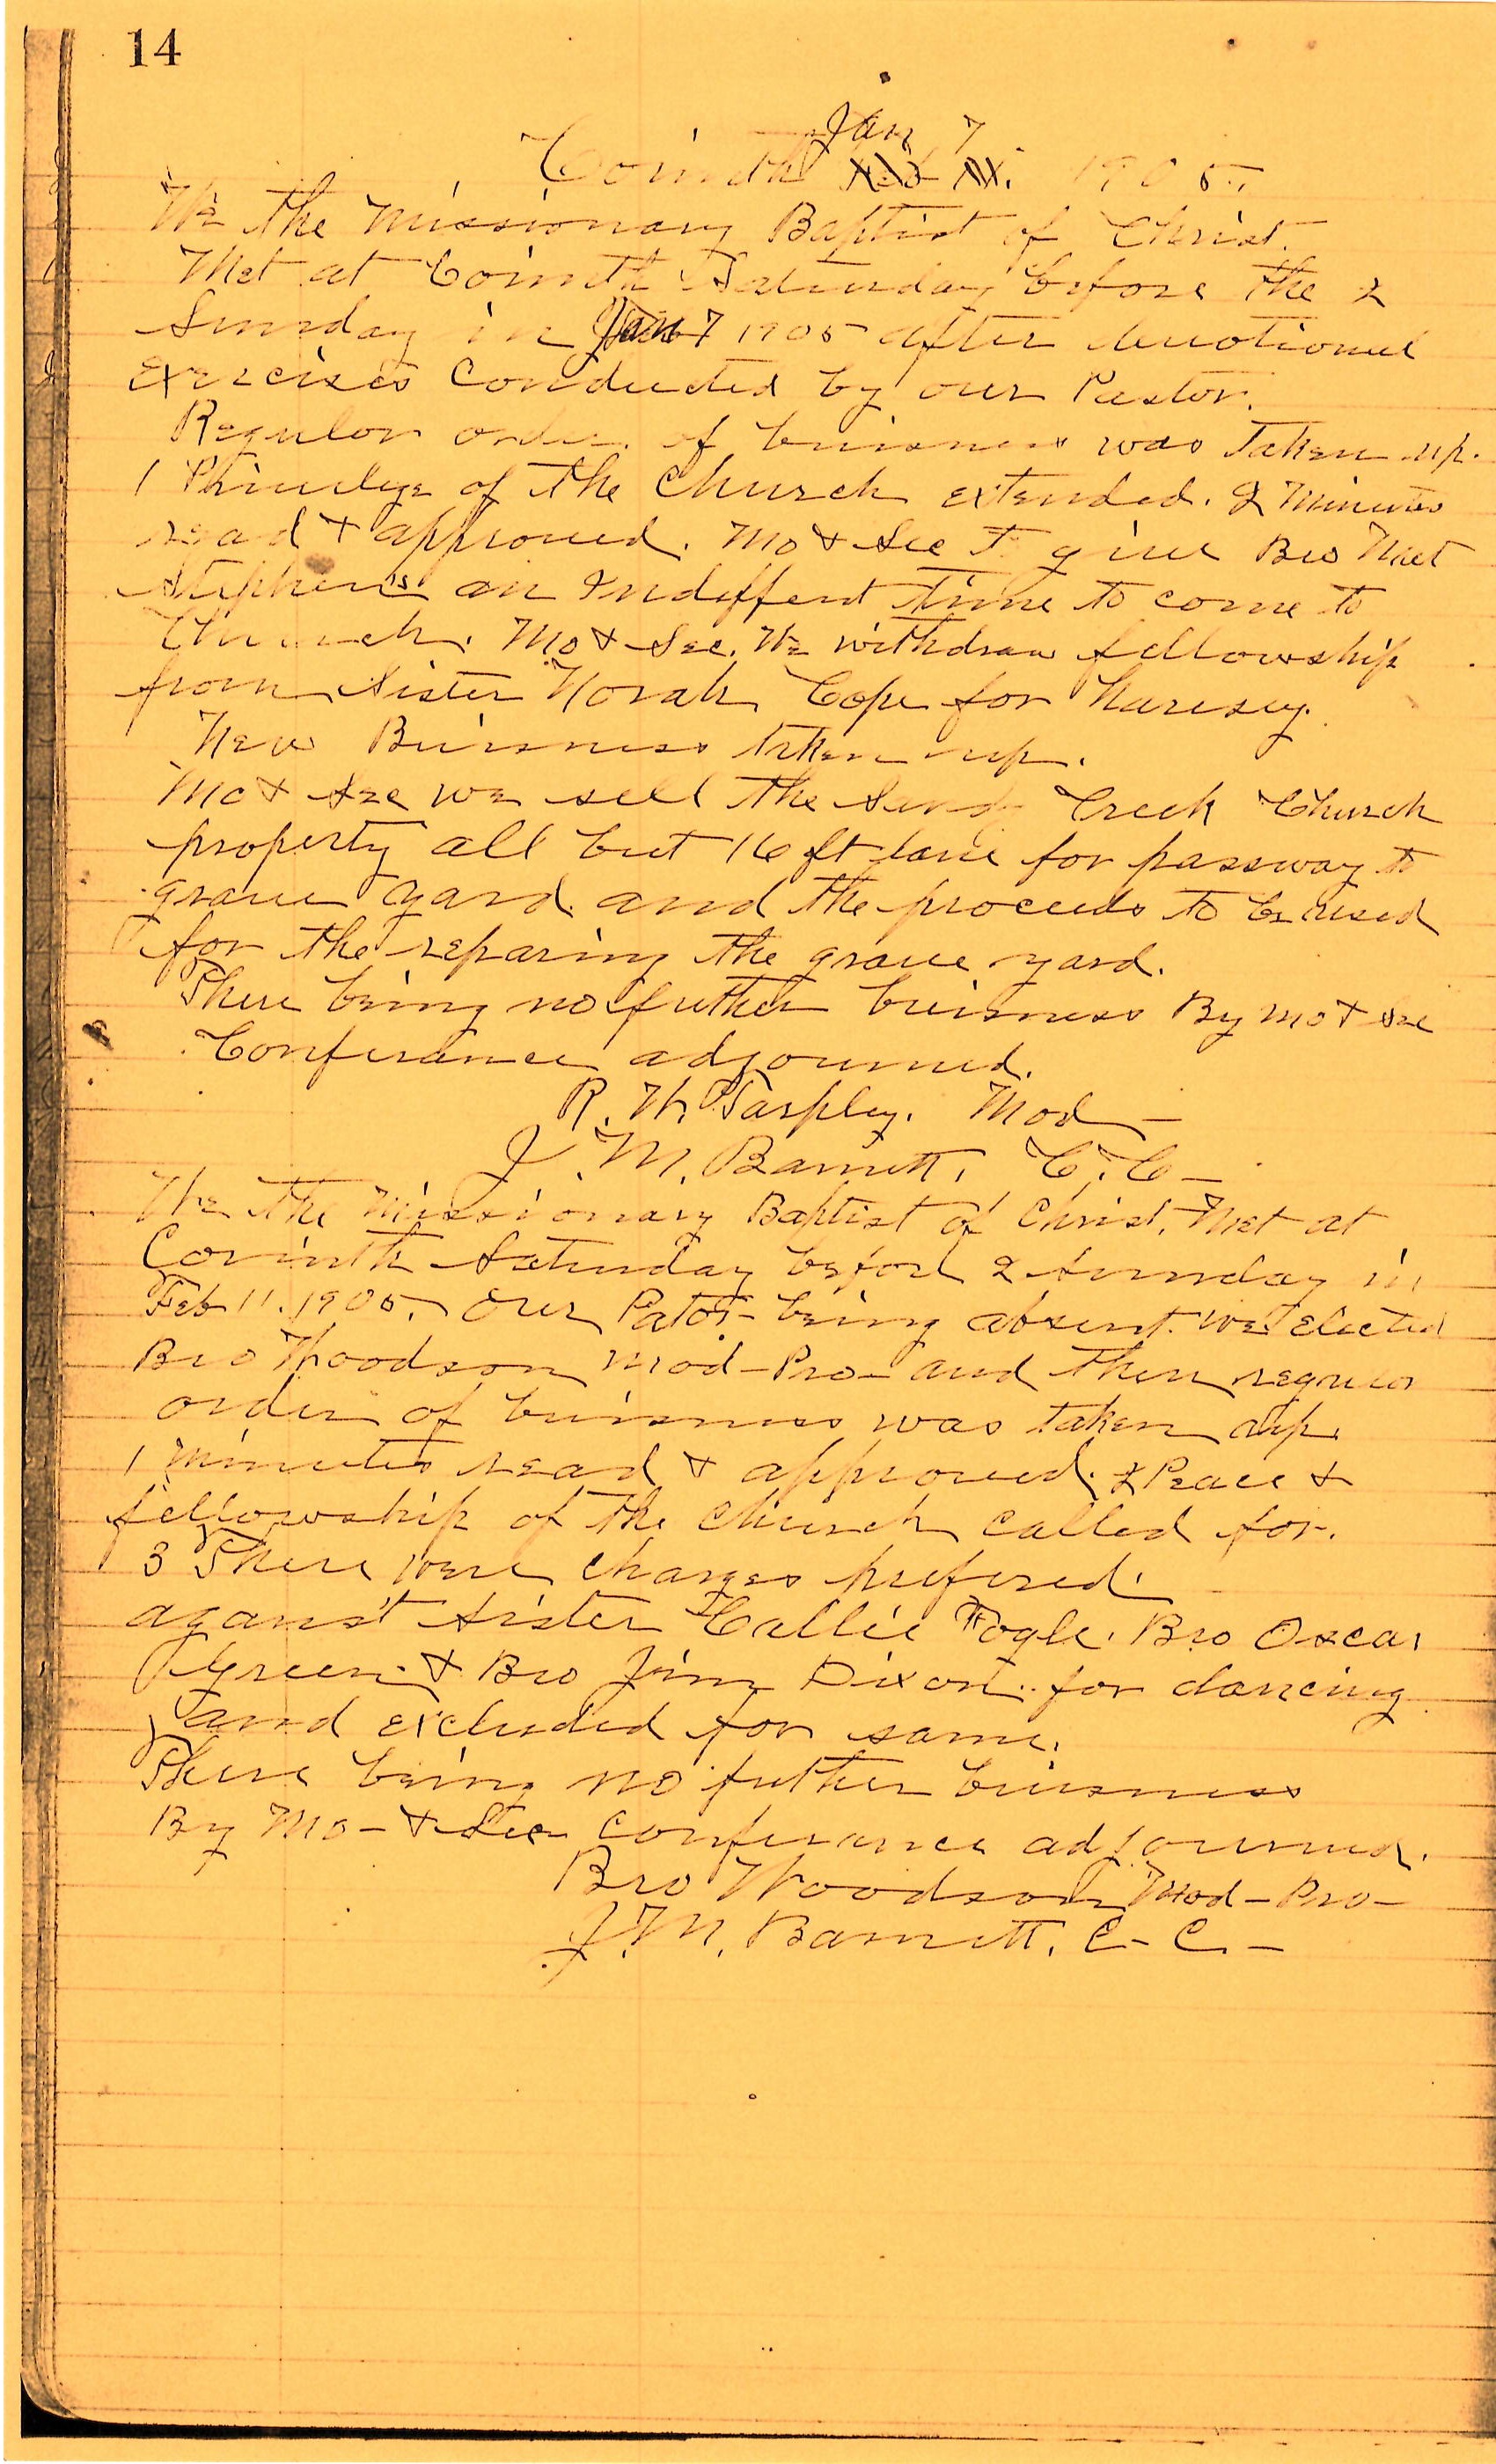 14
Jan 7
Corinth 1905.
We the Missionary Baptist of Christ.
Met at Corinth Saturday before the 2
Sunday in Jan 7 1905 after devotional
exercises conducted by our Pastor.
Regular order of buisness was taken up.
1 Priveledge of the Church extended. 2 Minutes
read & approved. Mo & Sec to give Bro
Stephens an Indeffent time to come to
Church. Mo & Sec. We withdraw fellowship
from Sister Norah Cope for haresey.
New Buisness taken up.
Mo & Sec we sell the Sandy Creek Church
property all but 16 ft lane for passway to
grave yard and the proceeds to be used
for the reparing the grave yard.
There being no futher buisness By Mo & Sec
Conferance adjourned.
R. W. Tarpley. Mod -
J. M. Barnett. C. C -
We the Missionary Baptist of Christ. Met at
Corinth Saturday before 2 Sunday in
Feb 11. 1905. Our Pator being absent. We elected
Bro Woodson Mod-Pro- and then regular
order of buisness was taken up.
1 minutes read & approved. 2 Peace &
fellowship of the church called for.
3 There were charges prefered.
against Sister Callie Fogle. Bro Oscar
Green & Bro Jim Dixon. for dancing
and excluded for same.
There being no futher buisness
By Mo - & Sec conferance adjourned.
Bro Woodson Mod-Pro-
J. M. Barnett. C- C. -